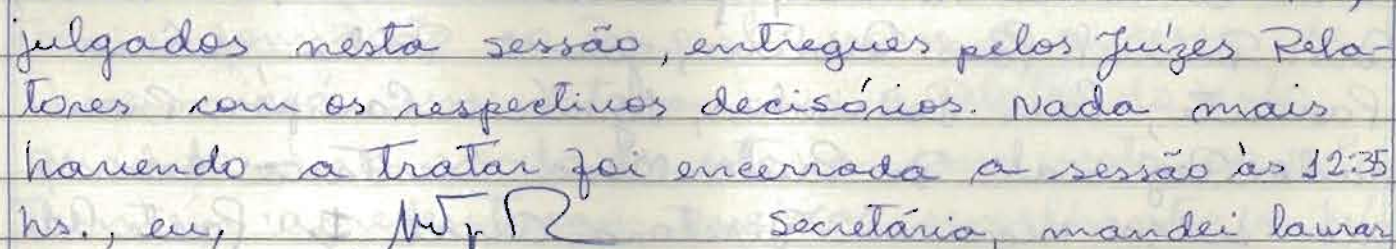 julgados nesta sessão, entregues pelos Juízes Rela-
tores com os respectivos decisórios. Nada mais
havendo a tratar foi encerrada a sessão às 12:35
hs., eu, secretária, mandei lavrar